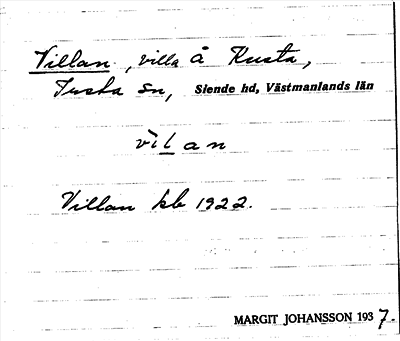 Villan, villa å Kusta,
Tuska sn, Siende hd, Västmanlands län
vìlan
Villan kb 1922.
MARGIT JOHANSSON 1937.